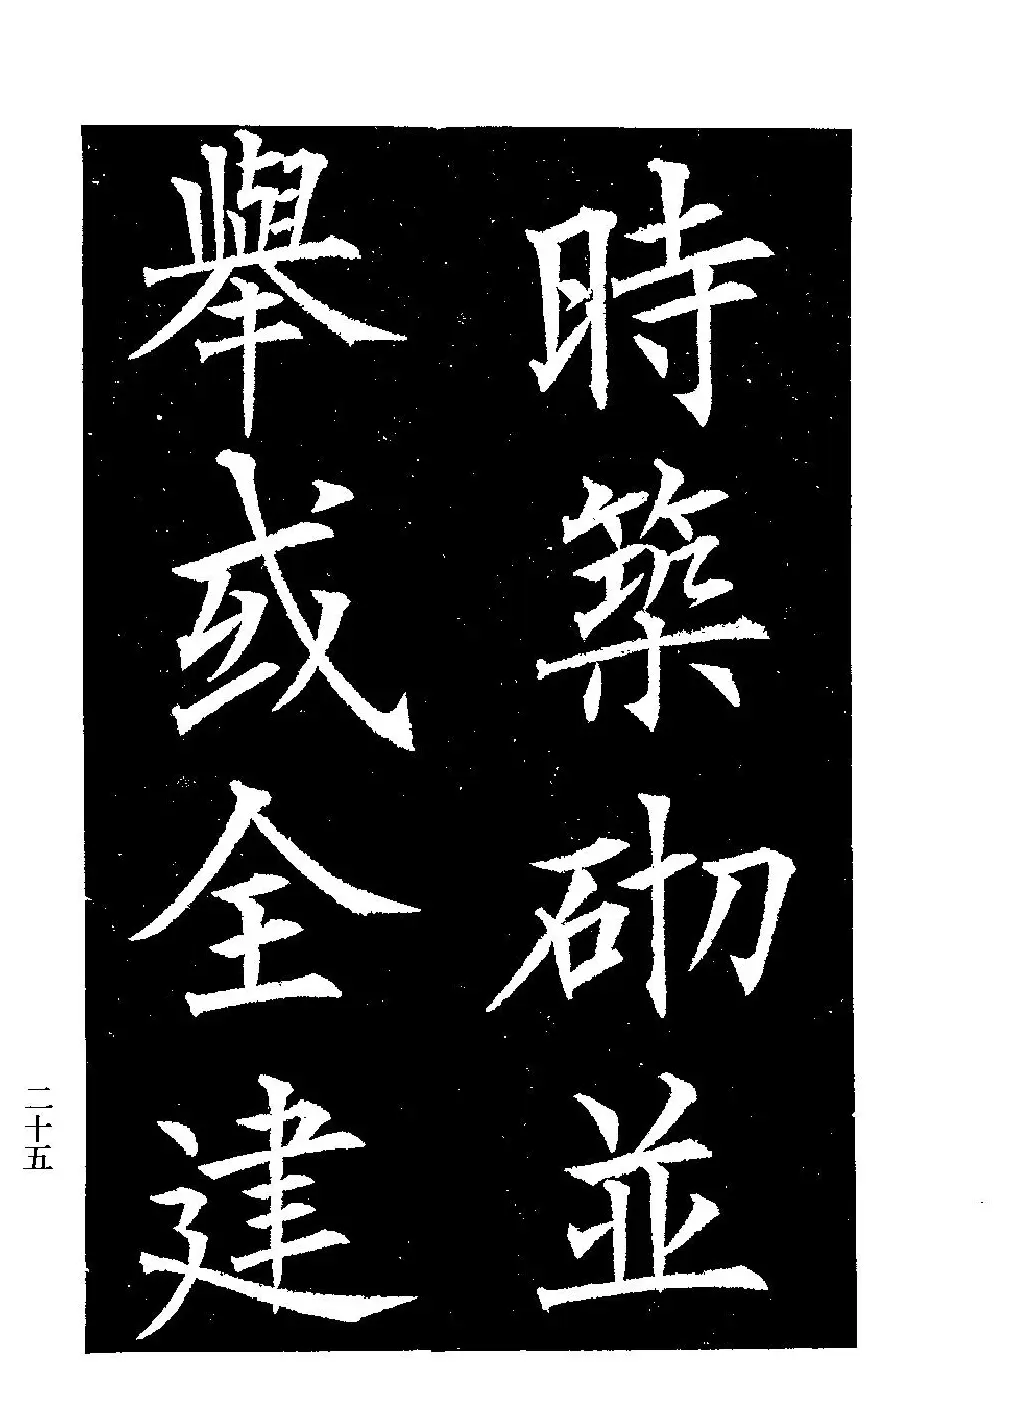 時築砌並
舉或全建
二十五